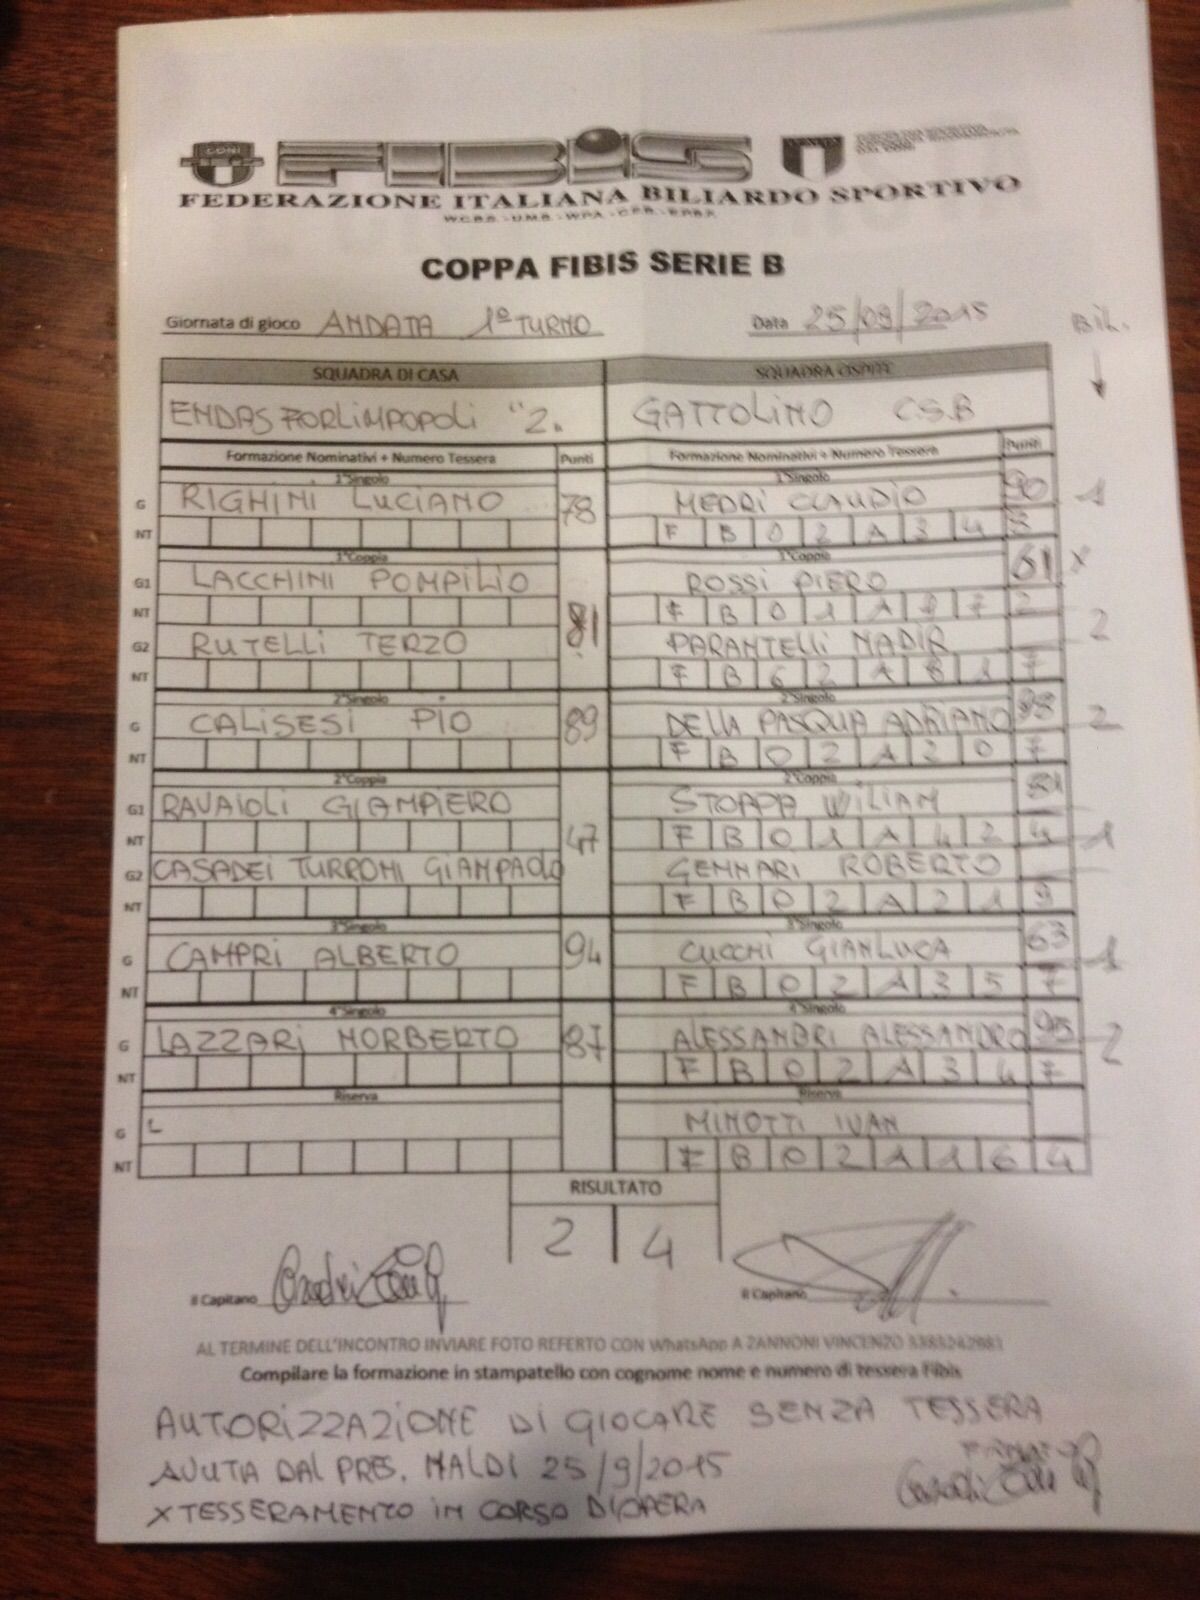 CONI
FIBiS
FEDERAZIONE ITALIANA BILIARDO SPORTIVO
COPPA FIBIS SERIE B
Giornata di gioco ANDATA 1º TURNO Data 25/09/2015 BiL.
SQUADRA DI CASA SQUADRA OSPITE
ENDAS FORLIMPOPOLI "2" GATTOLINO C.S.B
Formazione Nominativi + Numero Tessera Punti Formazione Nominativi + Numero Tessera Punti
1°Singolo 1°Singolo
G RIGHINI LUCIANO 78 MEDRI CLAUDIO 90 1
NT F B 0 2 A 3 4
1°Coppia 1°Coppia
G1 LACCHINI POMPILIO 81 ROSSI PIERO 61 x
NT F B 0 1 A 7 2
G2 RUTELLI TERZO PARANTELLI NADIR 2
NT F B 2 A 8 1 7
2°Singolo 2°Singolo
G CALISESI PIO 89 DELLA PASQUA ADRIANO 2
NT F B 0 2 A 2 0 7
2°Coppia 2°Coppia
G1 RAVAIOLI GIAMPIERO 47 STOPPA WILIAM
NT F B 0 1 A 4 2 4 1
G2 CASADEI TURRONI GIAMPAOLO GENNARI ROBERTO
NT F B 0 2 A 2 1 9
3°Singolo 3°Singolo
G CAMPRI ALBERTO 94 CUCCHI GIANLUCA 63 1
NT F B 0 2 A 3 5 7
4°Singolo 4°Singolo
G LAZZARI NORBERTO 87 ALESSANDRI ALESSANDRO 95 2
NT F B 0 2 A 3 4 7
Riserva Riserva
G L MINOTTI IVAN
NT F B 0 2 1 1 6 4
RISULTATO
2 4
Il Capitano Il Capitano
AL TERMINE DELL'INCONTRO INVIARE FOTO REFERTO CON WhatsApp A ZANNONI VINCENZO
Compilare la formazione in stampatello con cognome nome e numero di tessera Fibis
AUTORIZZAZIONE DI GIOCARE SENZA TESSERA
AVUTA DAL PRES. NALDI 25/9/2015
X TESSERAMENTO IN CORSO D'OPERA